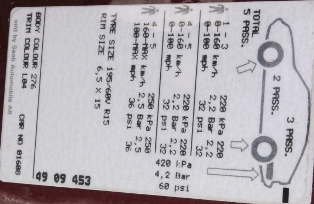 TOTAL 2 PASS. 3 PASS.
5 PASS.
1 - 3 220 kPa 220
0-160 km/h 2,2 Bar 2,2
0-100 mph 32 psi 32
4 - 5 220 kPa 220
0-160 km/h 2,2 Bar 2,2
0-100 mph 32 psi 32
4 - 5 250 kPa 250
160-MAX km/h 2,5 Bar 2,5
100-MAX mph 36 psi 36
420 kPa
4,2 Bar
60 psi
TYRE SIZE 195/60V R15
RIM SIZE 6,5 X 15
BODY COLOUR 276
TRIM COLOUR L04 CAR NO 01600
mfd by Saab Automobile AB
49 09 453